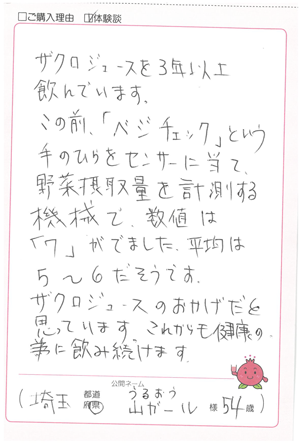 □ご購入理由 ☑体験談
ザクロジュースを3年以上
飲んでいます。
この前、「ベジチェック」という
手のひらをセンサーに当て、
野菜摂取量を計測する
機械で、数値は
「7」がでました。平均は
5～6だそうです。
ザクロジュースのおかげだと
思っています。これからも健康の
為に飲み続けます。
公開ネーム
(埼玉 都道府県 うるおう山ガール 様 54歳)